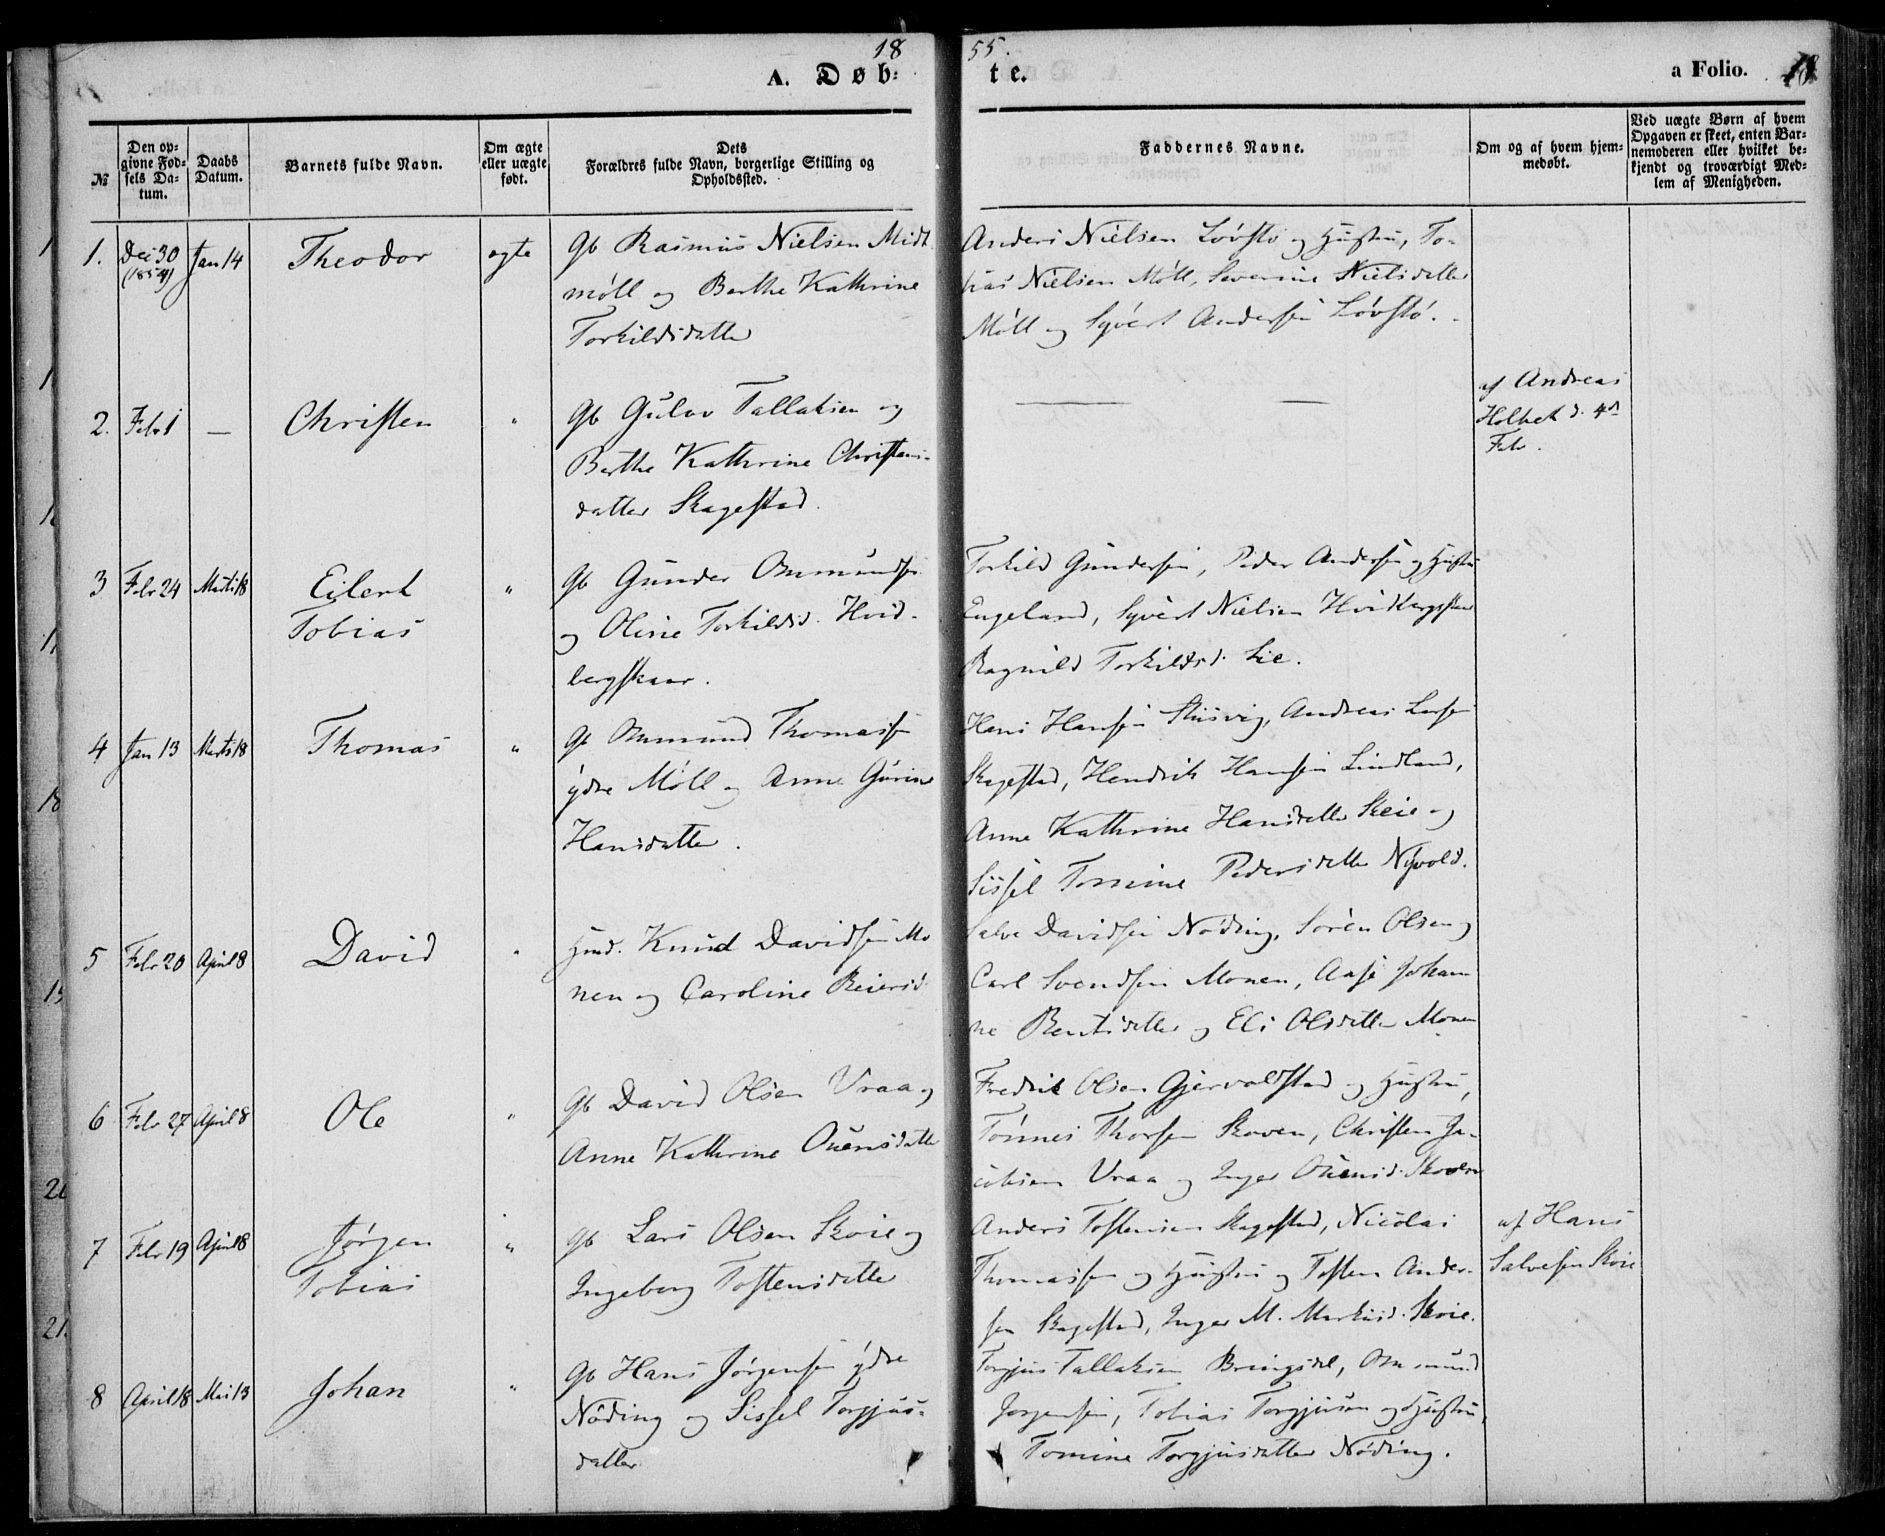 18 55.
A. Døb: te.
a Folio. 18
№
Den opgivne Fødsels Datum.
Daabs Datum.
Barnets fulde Navn.
Om ægte eller uægte født.
Dets Forældres fulde Navn, borgerlige Stilling og Opholdssted.
Faddernes Navne.
Om og af hvem hjemmedøbt.
Ved uægte Børn af hvem Opgaven er skeet, enten Barnemoderen eller hvilket bekjendt og troværdigt Medlem af Menigheden.
1. Dec 30 (1854) Jan 14 Theodor ægte
Gb Rasmus Nielsen Midt
møll og Berthe Kathrine
Torkildsdatter
Anders Nielsen Løvstø og Hustru, To-
bias Nielsen Møll, Severine Nielsdatter
Møll og Syvert Andersen Løvstø.
2. Febr 1 — Christen "
Gb Gulov Tallaksen og
Berthe Kathrine Christens-
datter Skagestad.
—— ——
af Andreas
Holbek d. 4d
Febr.
3 Febr 24 Marts 18 Eilert
Tobias "
Gb Gunder Ommundsen
og Oline Torkildsd. Hvid-
bergskaar.
Torkild Gundersen, Peder Andersen og Hustru
Engeland, Syvert Nielsen Hvidbergskaar
Ragnild Torkildsd. Lie.
4 Jan 13 Marts 18 Thomas "
Gb Ommund Thomassen
ydre Møll og Anne Gurine
Hansdatter.
Hans Hansen Stusvig, Andreas Larsen
Skagestad, Hendrik Hansen Lindland,
Anne Kathrine Hansdatter Skeie og
Sissel Tomine Pedersdatter Nyvold.
5 Febr 20 April 8 David "
Hmd. Knud Davidsen Mo
nen og Caroline Reiersd.
Salve Davidsen Nøding, Søren Olsen og
Carl Svendsen Monen, Aase Johan
ne Bentsdatter og Eli Olsdatter Monen
6 Febr 27 April 8 Ole "
Gb David Olsen Vraa og
Anne Kathrine Ouensdatter
Fredrik Olsen Gjervoldstad og Hustru,
Tønnes Thorsen Skoven, Christen Ja-
cobsen Vraa og Inger Ouensd. Skoven
7 Febr 19 April 8 Jørgen
Tobias "
Gb Lars Olsen Skoie og
Ingeborg Tostensdatter
Anders Tostensen Skagestad, Nicolai
Thomassen og Hustru og Tosten Ander-
sen Skagestad, Inger M. Markusd. Skoie.
af Hans
Salvesen Skoie
8 April 18 Mai 13 Johan "
Gb Hans Jørgensen ydre
Nøding og Sissel Torgjus-
datter
Torgjus Tallaksen Bringsdal, Ommund
Jørgensen, Tobias Torgjusen og Hustru,
Tomine Torgjusdatter Nøding.